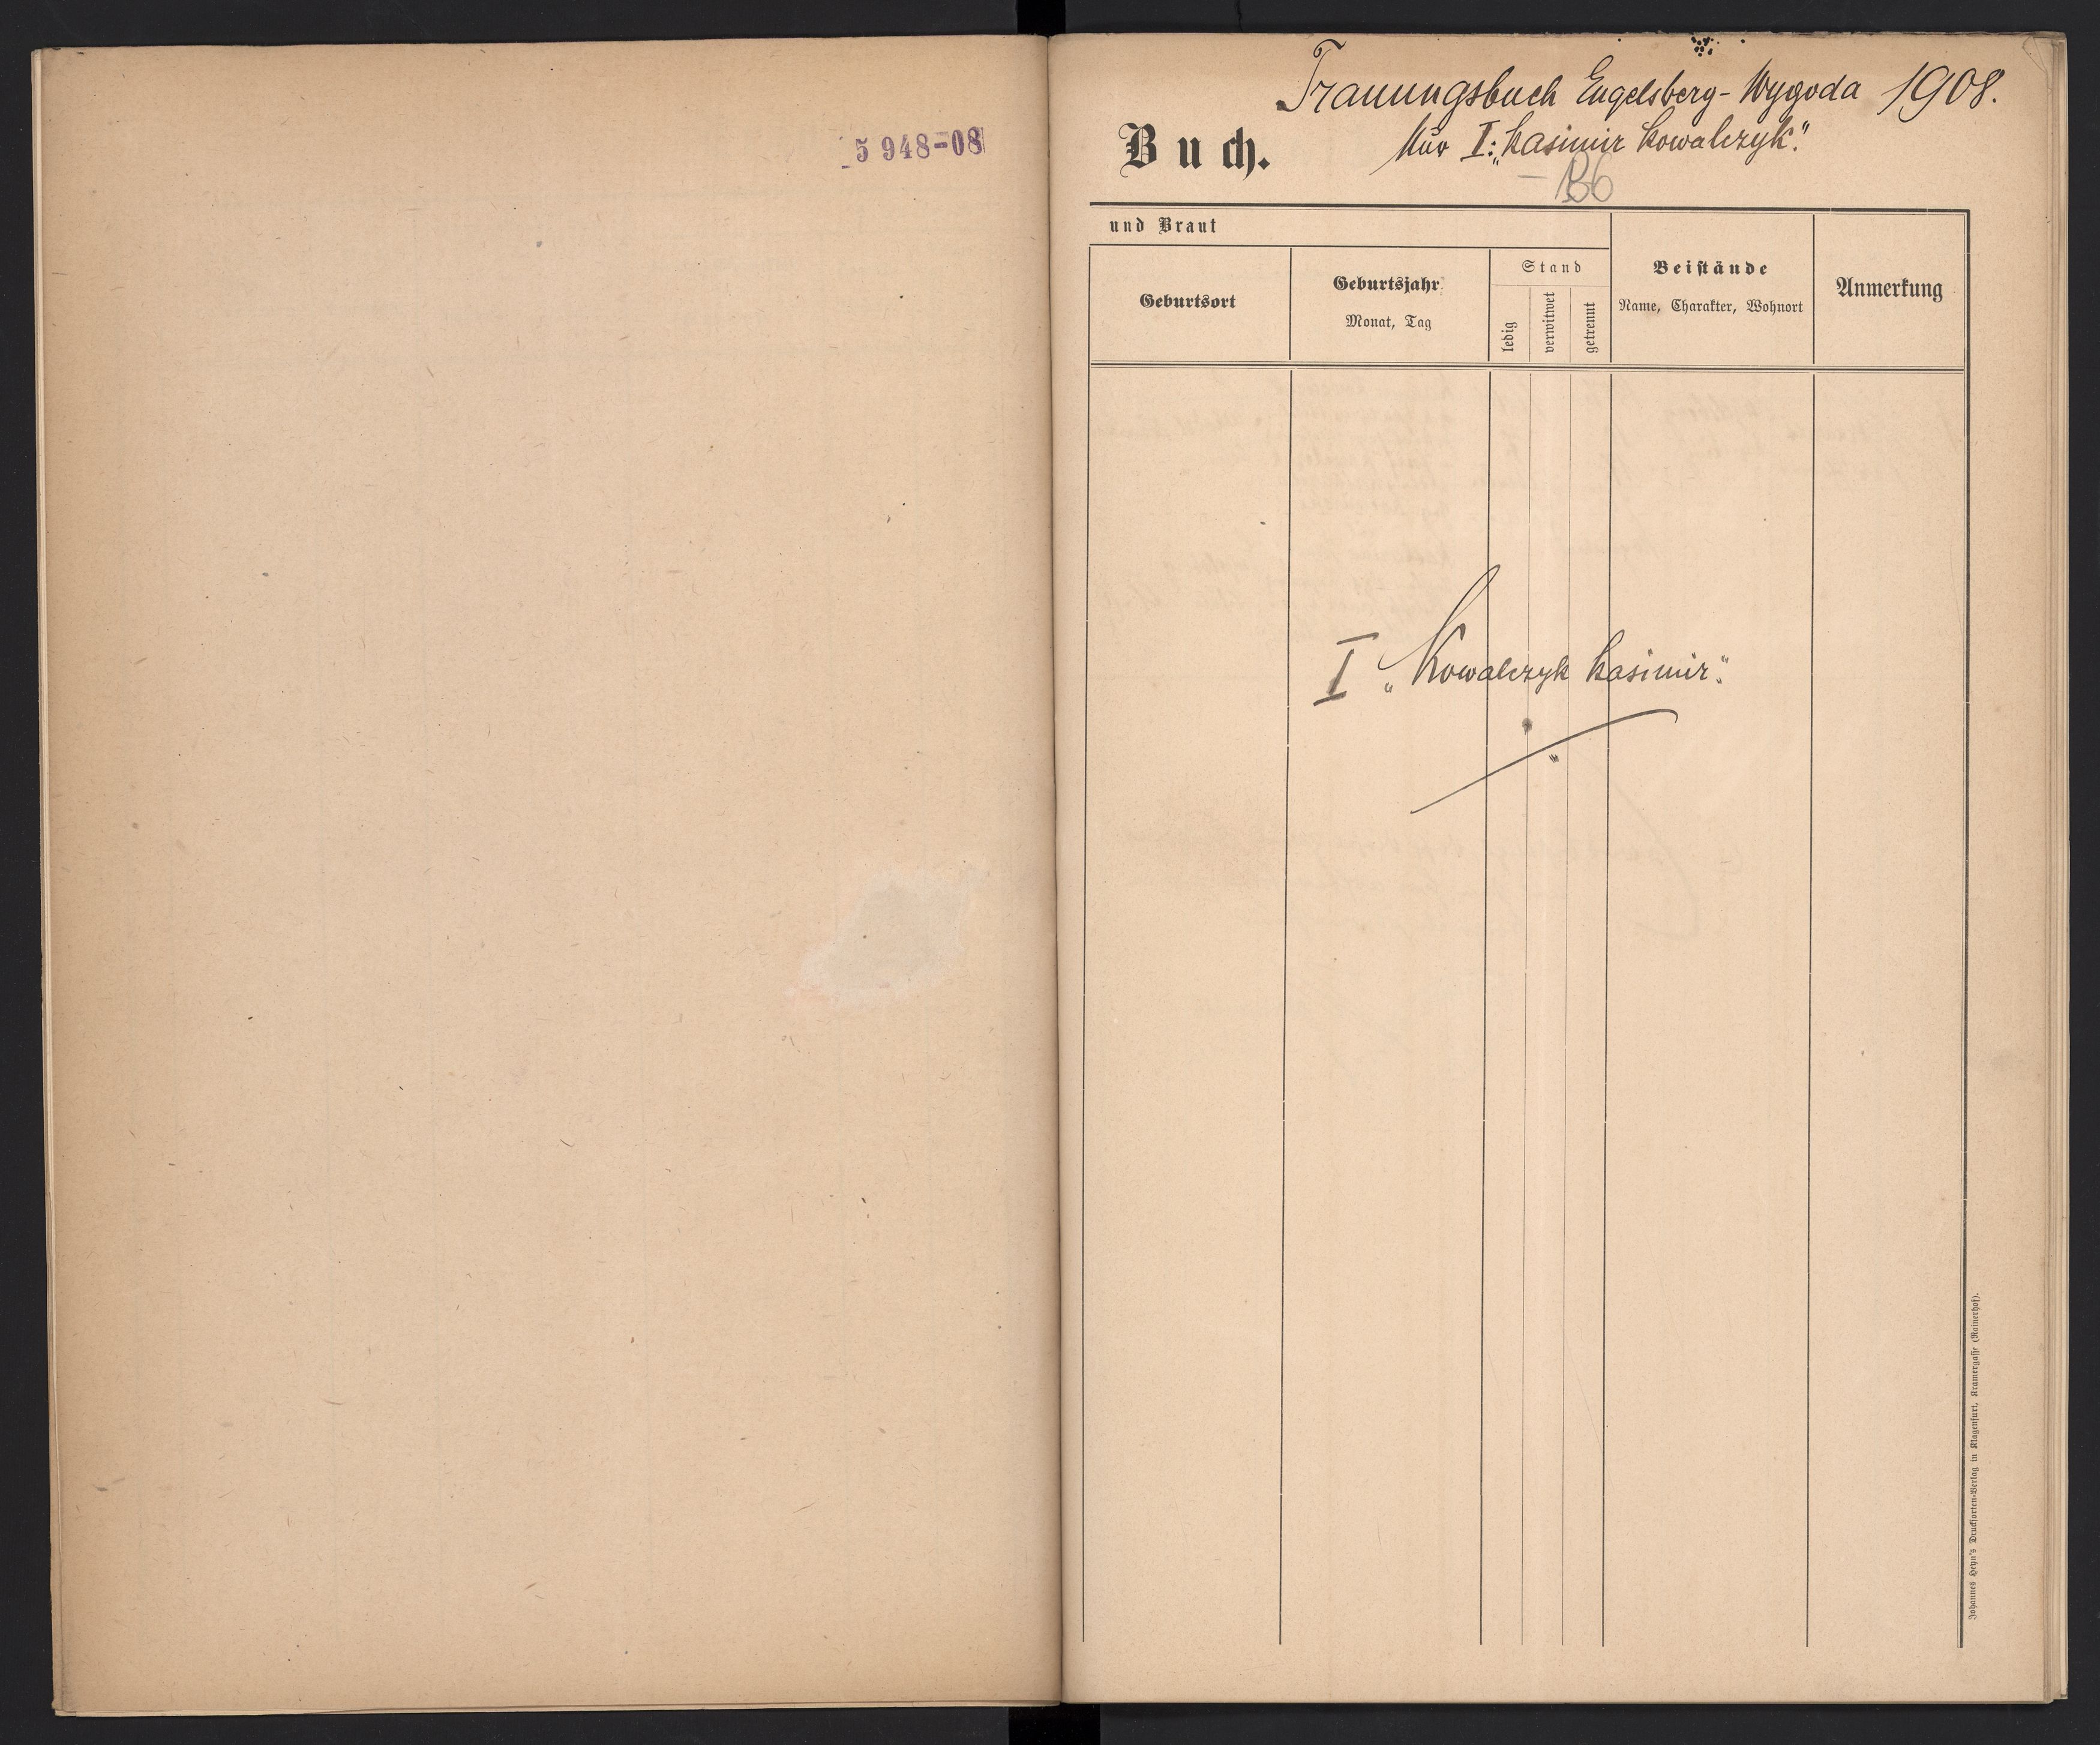 5 948-08
Trauungsbuch Engelsberg-Wygoda 1908.
Buch.
Nur I: „Kasimir Kowalczyk."
B6
und Braut
Geburtsort
Geburtsjahr
Monat, Tag
Stand
ledig
verwitwet
getrennt
Beistände
Name, Charakter, Wohnort
Anmerkung
I „Kowalczyk Kasimir".
Johannes Heyn's Drucksorten-Verlag in Klagenfurt, Kramergasse (Rainerhof).